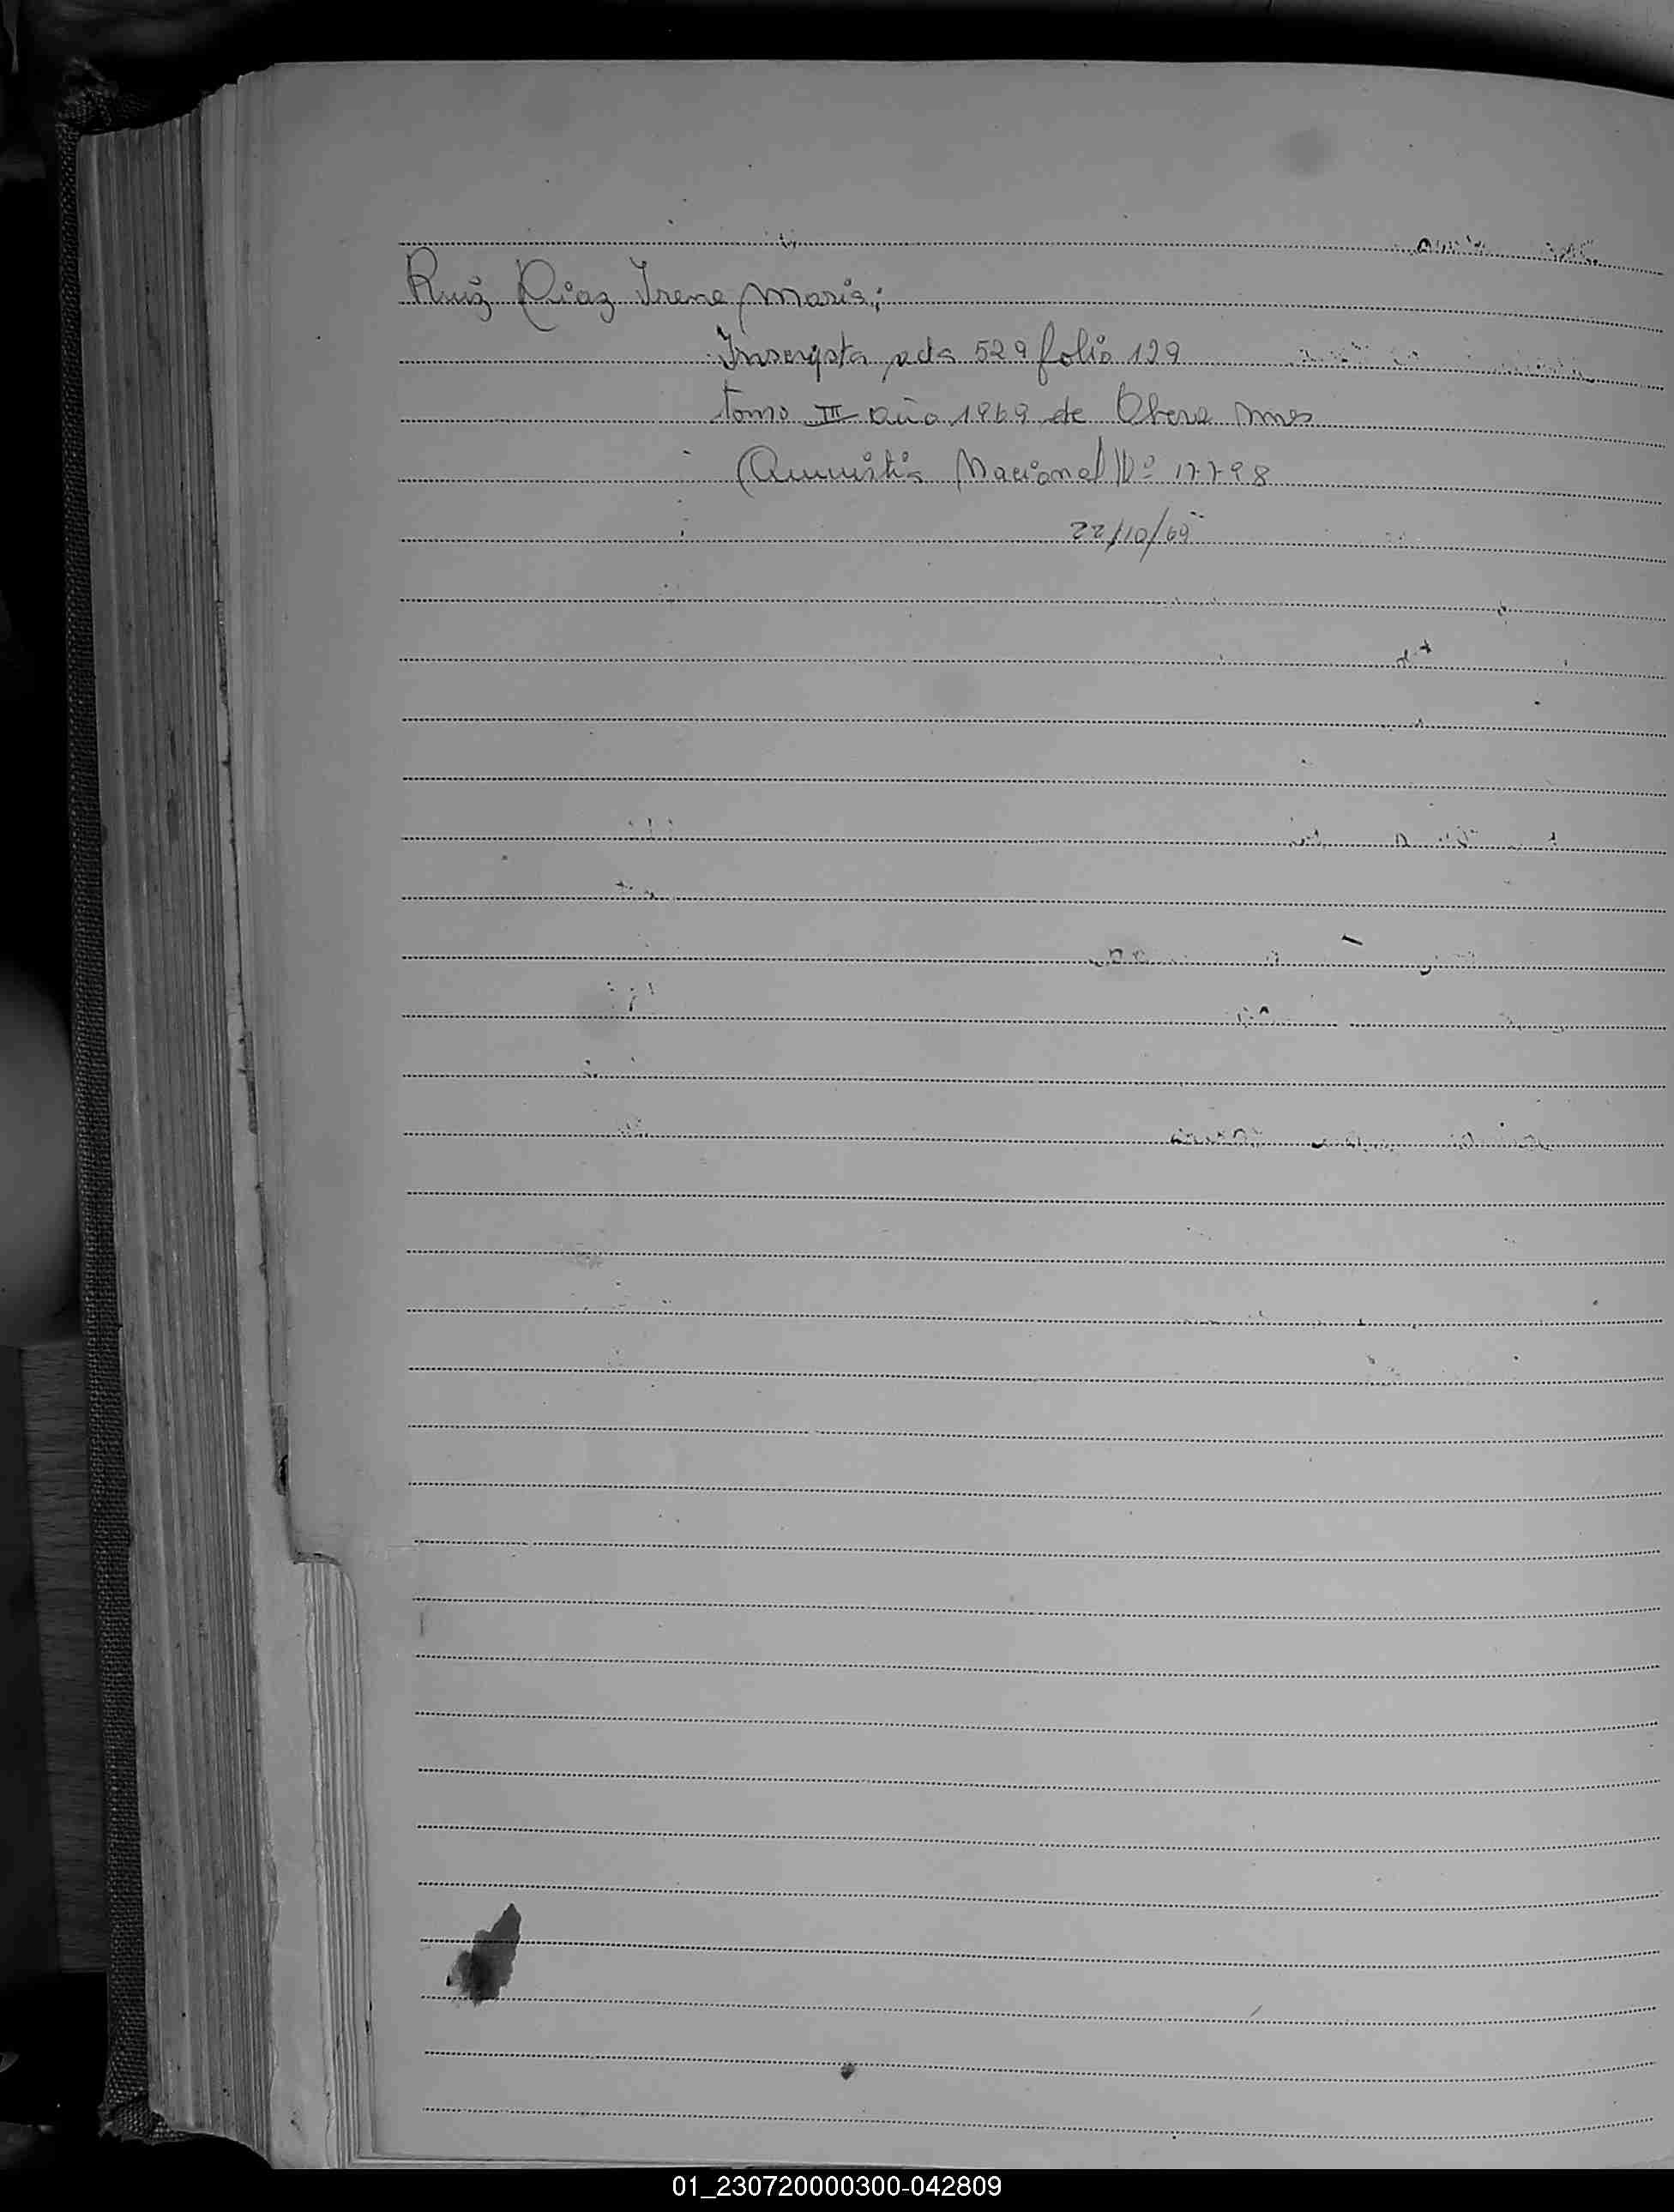 Ruiz Diaz Irene Maria;
Inscripta acta 529 folio 129
tomo III año 1969 de Obera mnes
Amnistia Nacional Nº 17.798
22/10/69
01_230720000300-042809